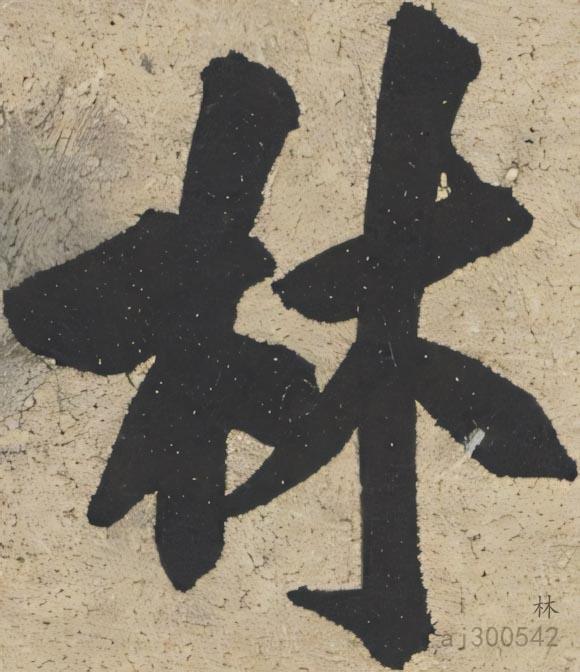 林
林
aj300542